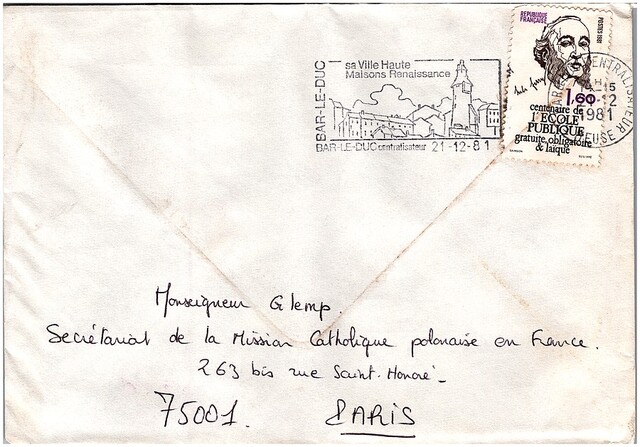 REPUBLIQUE
FRANÇAISE
POSTES 1981
1,60
centenaire de
l'ECOLE
PUBLIQUE
gratuite, obligatoire
& laïque
BAR-LE-DUC
sa Ville Haute
Maisons Renaissance
BAR-LE-DUC centralisateur 21-12-81
CENTRALISATEUR
1981
MEUSE
Monseigneur Glemp.
Secrétariat de la Mission Catholique polonaise en France.
263 bis rue Saint-Honoré_
75001. PARIS